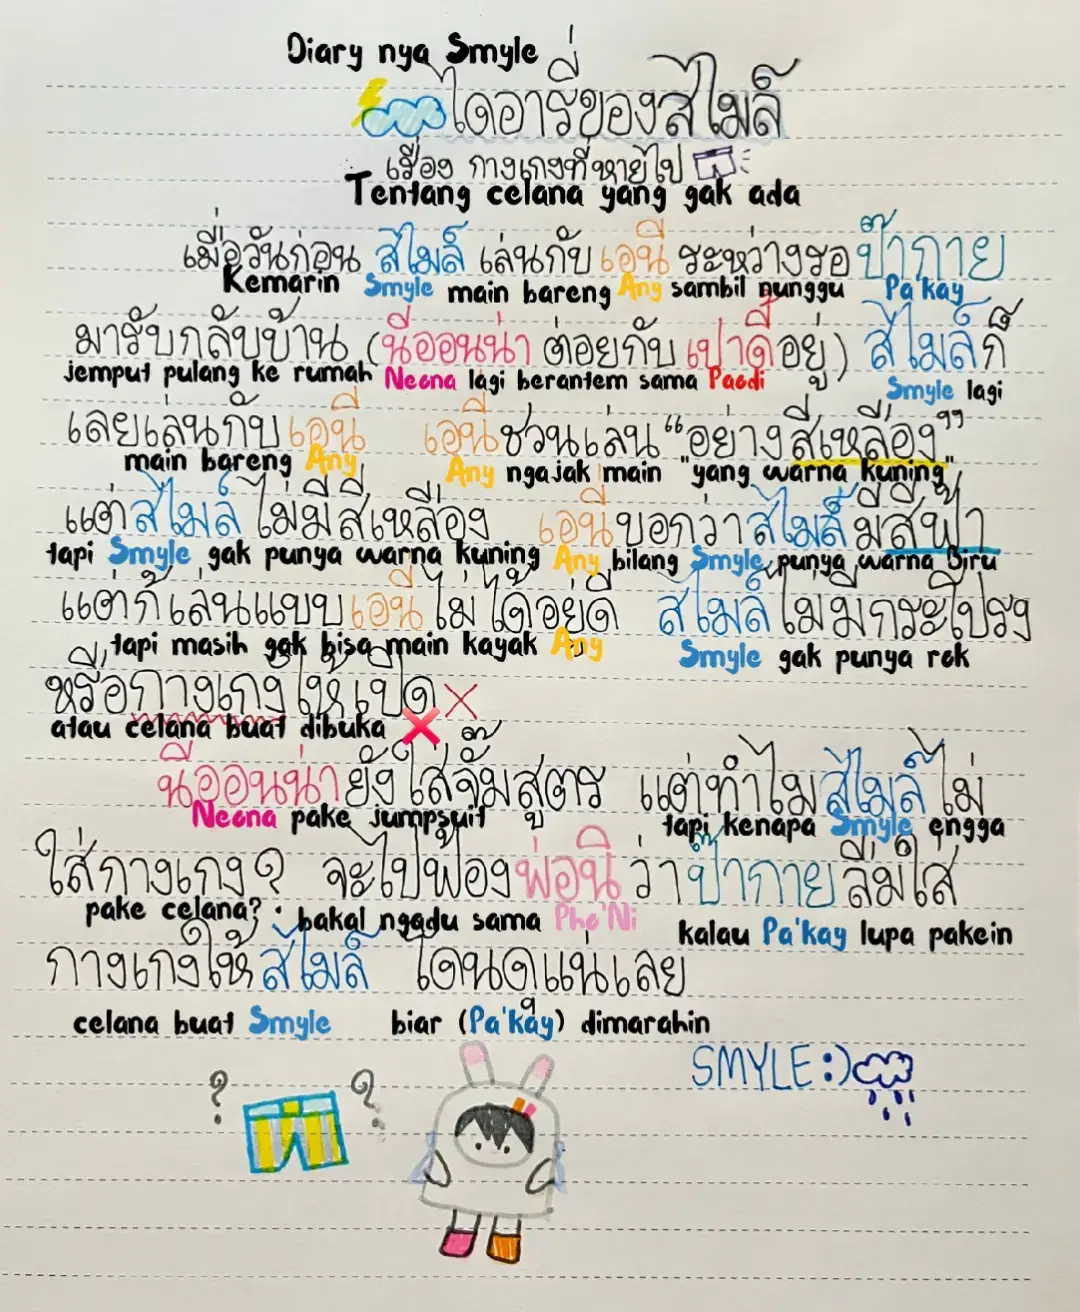 Diary nya Smyle
ไดอารี่ของสไมล์
เรื่อง กางเกงที่หายไป
Tentang celana yang gak ada
เมื่อวันก่อน สไมล์ เล่นกับเอนี่ ระหว่างรอป๊ากาย
Kemarin Smyle main bareng Any sambil nunggu Pa'kay
มารับกลับบ้าน (นีออนน่า ต่อยกับ เปาดี้อยู่) สไมล์ก็
jemput pulang ke rumah Neona lagi berantem sama Paodi Smyle lagi
เลยเล่นกับเอนี่ เอนี่ชวนเล่น "อย่างสีเหลือง"
main bareng Any Any ngajak main "yang warna kuning"
แต่สไมล์ไม่มีสีเหลือง เอนี่บอกว่าสไมล์มีสีฟ้า
tapi Smyle gak punya warna kuning Any bilang Smyle punya warna Biru
แต่ก็เล่นแบบเอนี่ไม่ได้อยู่ดี สไมล์ไม่มีกระโปรง
tapi masih gak bisa main kayak Any Smyle gak punya rok
หรือกางเกงให้เปิด X
atau celana buat dibuka ❌
นีออนน่ายังใส่จั๊มสูตร แต่ทำไมสไมล์ไม่
Neona pake jumpsuit tapi kenapa Smyle engga
ใส่กางเกง? จะไปฟ้องพ่อนิว่าป๊ากายลืมใส่
pake celana? bakal ngadu sama Pho'Ni kalau Pa'kay lupa pakein
กางเกงให้สไมล์ โดนดุแน่เลย
celana buat Smyle biar (Pa'kay) dimarahin
SMYLE :)
? ?